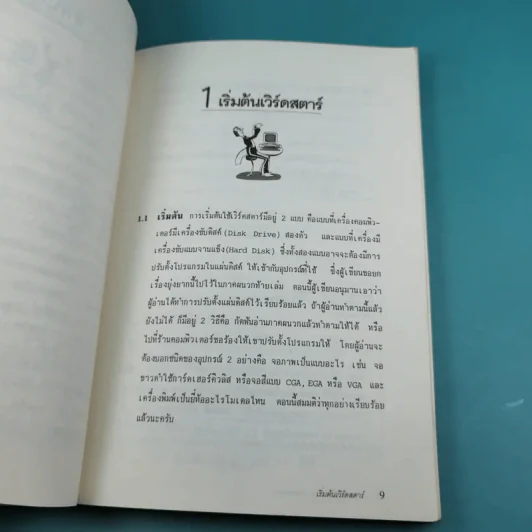 1 เริ่มต้นเวิร์ดสตาร์
1.1 เริ่มต้น การเริ่มต้นใช้เวิร์ดสตาร์มีอยู่ 2 แบบ คือแบบที่เครื่องคอมพิว-
เตอร์มีเครื่องขับดิสค์ (Disk Drive) สองตัว และแบบที่เครื่องมี
เครื่องขับแบบจานแข็ง (Hard Disk) ซึ่งทั้งสองแบบอาจจะต้องมีการ
ปรับตั้งโปรแกรมในแผ่นดิสค์ ให้เข้ากับอุปกรณ์ที่ใช้ ซึ่งผู้เขียนขอยก
เรื่องยุ่งยากนี้ไปไว้ในภาคผนวกท้ายเล่ม ตอนนี้ผู้เขียนอนุมานเอาว่า
ผู้อ่านได้ทำการปรับตั้งแผ่นดิสค์ไว้เรียบร้อยแล้ว ถ้าผู้อ่านทำตามนี้แล้ว
ยังไม่ได้ ก็มีอยู่ 2 วิธีคือ กัดฟันอ่านภาคผนวกแล้วทำตามให้ได้ หรือ
ไปที่ร้านคอมพิวเตอร์ขอร้องให้เขาปรับตั้งโปรแกรมให้ โดยผู้อ่านจะ
ต้องบอกชนิดของอุปกรณ์ 2 อย่างคือ จอภาพเป็นแบบอะไร เช่น จอ
ขาวดำใช้การ์ดเฮอร์คิวลิส หรือจอสีแบบ CGA, EGA หรือ VGA และ
เครื่องพิมพ์เป็นยี่ห้ออะไรโมเดลไหน ตอนนี้สมมติว่าทุกอย่างเรียบร้อย
แล้วนะครับ
เริ่มต้นเวิร์ดสตาร์ 9